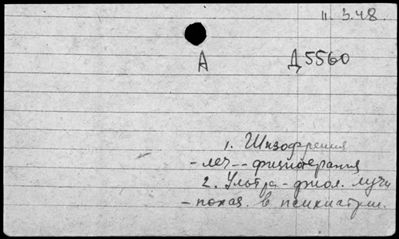 11.3.48.
А Д5560
1. Шизофрения
- леч - физиотерапия
2. Ультра-фиол. лучи
- показ. в психиатрии.